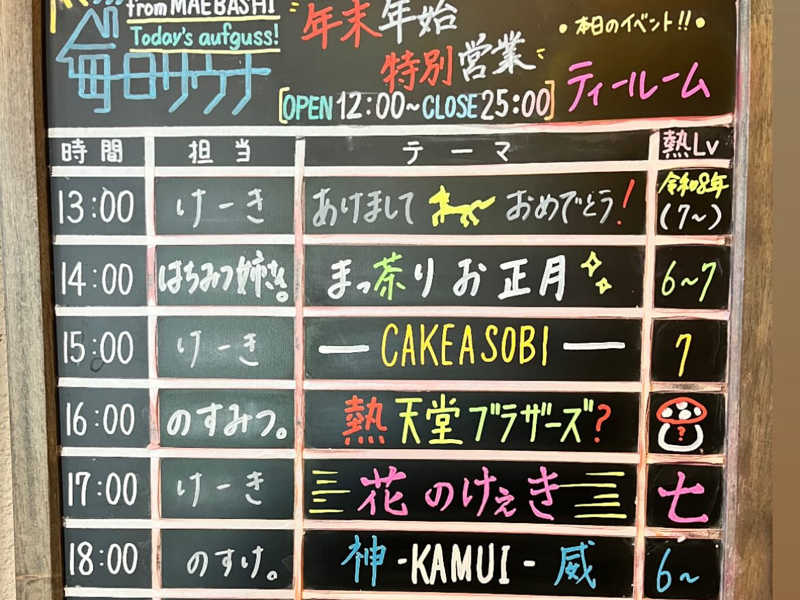 from MAEBASHI
Today's aufguss!
毎日サウナ
年末年始
特別営業
[OPEN 12:00~CLOSE 25:00]
• 本日のイベント!! •
ティールーム
時間 担当 テーマ 熱Lv
13:00 けーき あけまして おめでとう! 令和8年 (7~)
14:00 はちみつ姉さん。 まっ茶り お正月 6~7
15:00 けーき — CAKEASOBI — 7
16:00 のすみつ。 熱天堂ブラザーズ? ?
17:00 けーき 花のけぇき 七
18:00 のすけ。 神 -KAMUI- 威 6~